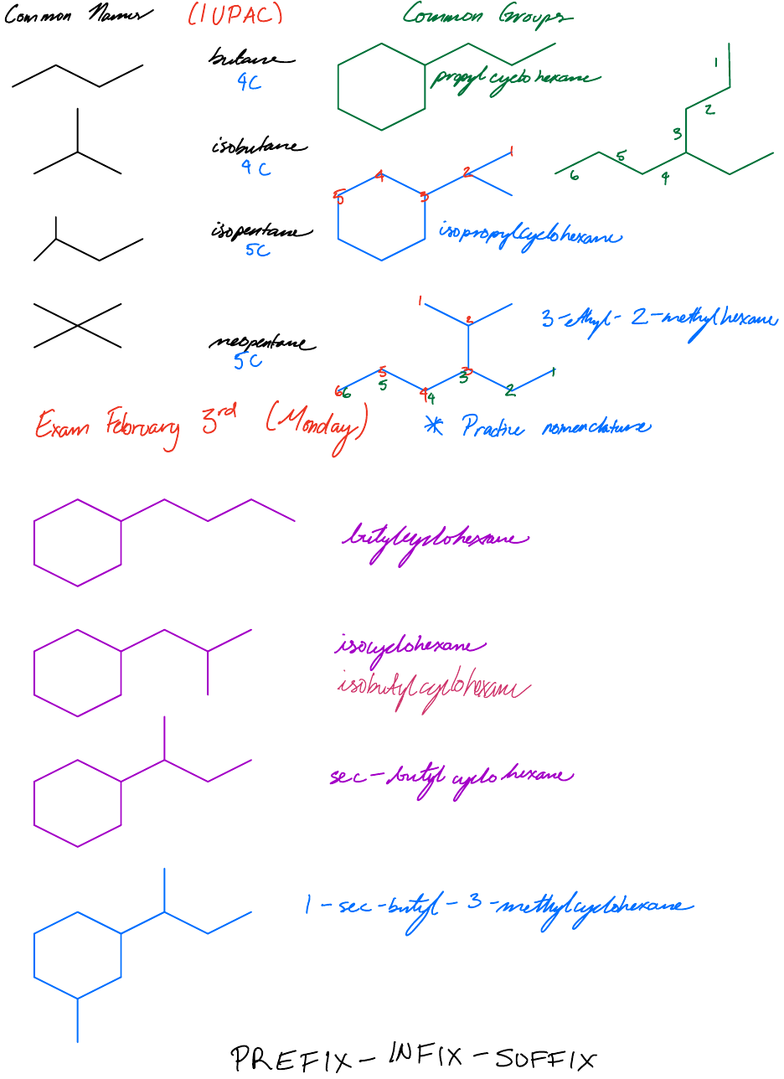 Common Names (IUPAC) Common Groups
butane
4C
propylcyclohexane
1
2
3
4
5
6
isobutane
4C
1
2
3
4
5
isopropylcyclohexane
isopentane
5C
neopentane
5C
3-ethyl-2-methylhexane
1
2
3
3
4
4
5
5
6
6
2
1
Exam February 3rd (Monday)
* Practice nomenclature
butylcyclohexane
isocyclohexane
isobutylcyclohexane
sec-butylcyclohexane
1-sec-butyl-3-methylcyclohexane
PREFIX-INFIX-SUFFIX